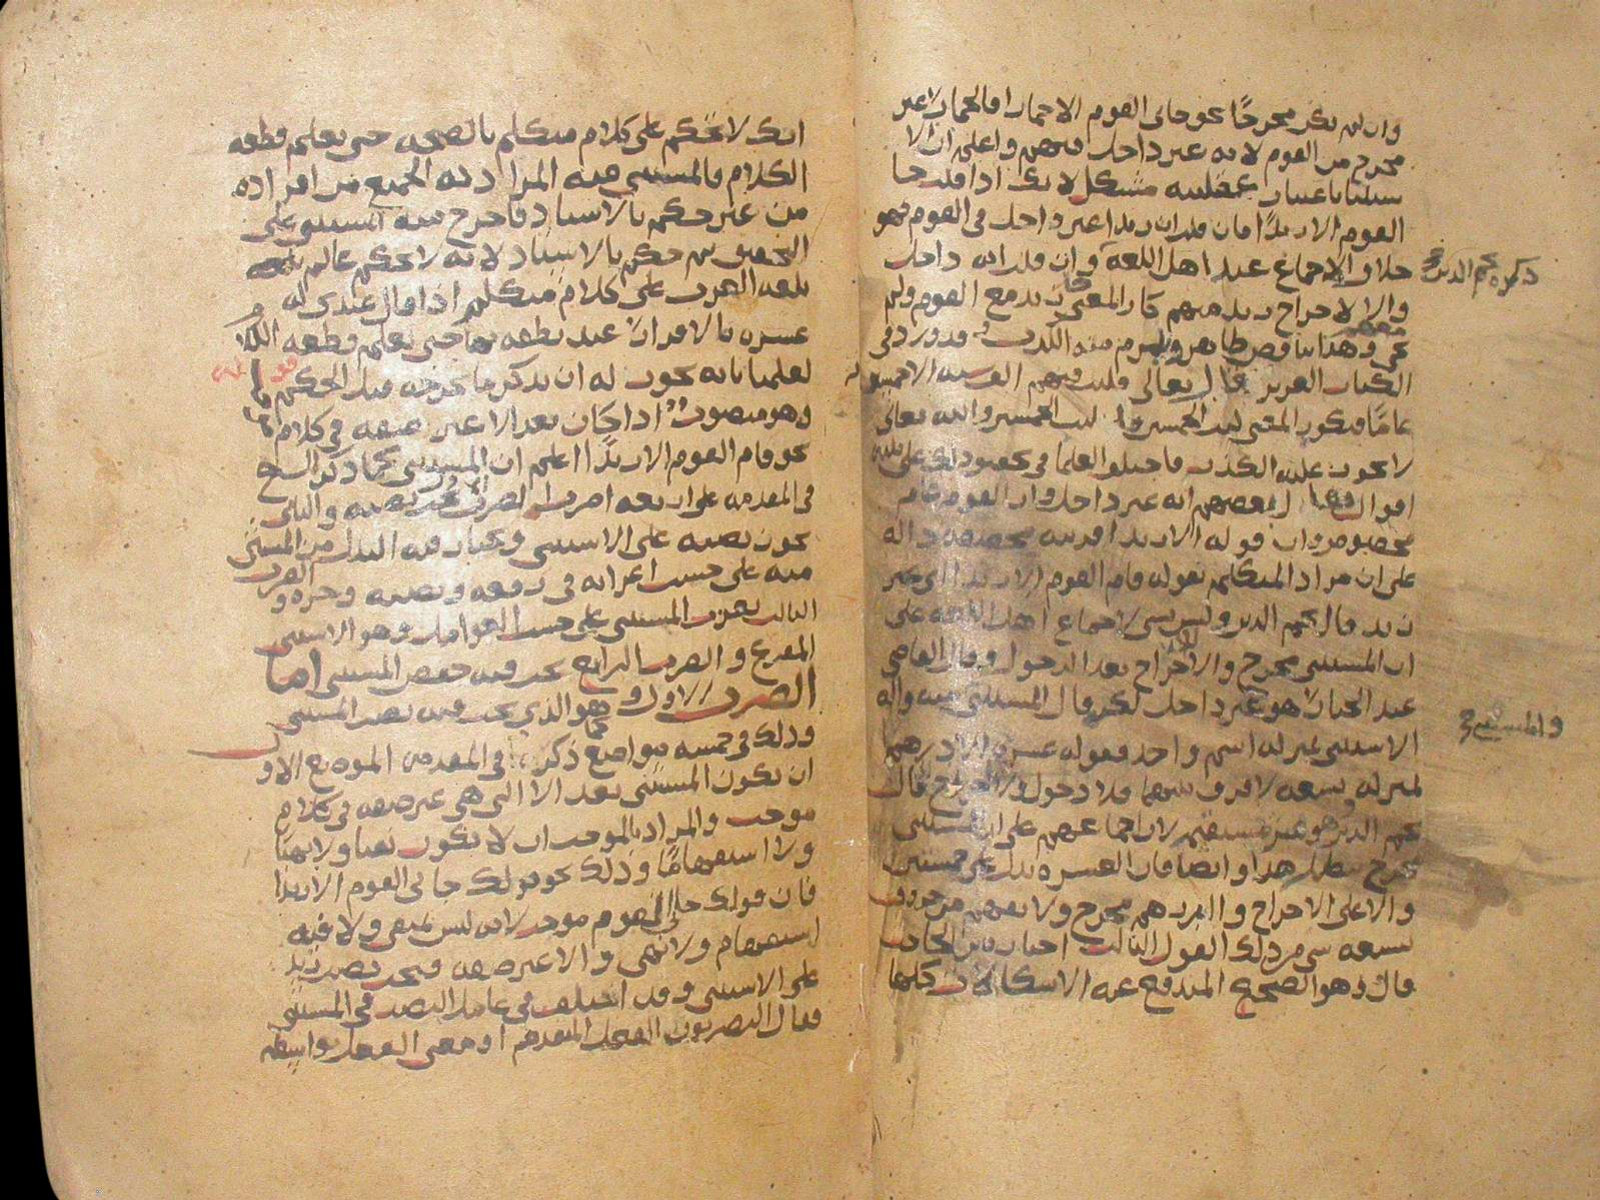 وان لم يكن مخرجًا نحو جاني القوم الا حمارا فالحمار غير
مخرج من القوم لانه غير داخل فيهم واعلم ان الا
ستثنا باعتبار عقليته مشكل لانك اذا قلت جا
القوم الا زيدًا فان قلت ان زيدا غير داخل في القوم فهو
خلاف الاجماع عند اهل اللغة وان قلت انه داخل
والا لاخراج زيد منهم كان المعنى زيد مع القوم ولم
وهذا تناقض ظاهر ويلزم منه الكذب وقد ورد في
الكتاب العزيز قال تعالى فلبث فيهم الف سنة الا خمسين
عامًا فيكون المعنى لبث الخمسين لم يلبث الخمسين والله تعالى
لا يجوز عليه الكذب فاختلفوا العلما في ذلك على ثلثة
اقوال فقال بعضهم انه غير داخل وان القوم عام
مخصوص وان قوله الا زيدا قرينة مخصصة دالة
على ان مراد المتكلم بقوله قام القوم الا زيدا اي غير
زيد قال نجم الدين وليس بشي لاجماع اهل اللغة على
ان المستثنى مخرج والاخراج بعد الدخول وقال القاضي
عبد الجبار هو غير داخل لكن قال المستثنى منه والة
الاستثنى بمنزلة اسم واحد فقوله عشرة الا درهم
بمنزلة تسعة لا فرق بينهما فلا دخول ولا اخراج قال
نجم الدين وهو غير مستقيم لاجماعهم على ان المستثنى
مخرج هذا وايضا فان العشرة تدل على خمستين
والا على الاخراج والدرهم مخرج ولا يفهم من حروف
تسعة شي من ذلك القول الثالث اختاره ابن الحاجب
قال وهو الصحيح المندفع عنه الاشكالات كلها
ذكره نجم الدين
انك لا تحكم على كلام متكلم بالصحة حتى تعلم قطعه
الكلام فالمستثنى منه المراد به الجميع من افراده
من غير حكم بالاسناد فاخرج منه المستثنى على
التحقيق ثم حكم بالاسناد لانه لا يحكم عالم
بلغة العرب على كلام متكلم اذا قال عندي له
عشرة بالاقرار عند نطقه بها حتى يعلم قطعه الكلام
لعلمنا بانه يجوز له ان يذكر ما يخرجه قبل الحكم
وهو منصوب اذا كان بعد الا غير صفة في كلام
نحو قام القوم الا زيدًا اعلم ان المستثنى كما ذكر الشيخ
في المقدمة على اربعة اضرب الضرب الاول يجب نصبه والثاني
يجوز نصبه على الاستثنى ويختار فيه البدل من المستثنى
منه على حسب اعرابه في رفعه ونصبه وجره والضرب
الثالث يعرب المستثنى على حسب العوامل وهو الاستثنى
المفرغ والضرب الرابع يجب فيه خفض المستثنى اما
الضرب الاول وهو الذي يجب فيه نصب المستثنى
وذلك في خمسة مواضع كما ذكر في المقدمة الموضع الاول
ان يكون المستثنى بعد الا التي هي غير صفة في كلام
موجب والمراد بالموجب ان لا يكون نفيا ولا نهيًا
ولا استفهامًا وذلك نحو قولك جاني القوم الا زيدا
فان قولك جاني القوم موجب لانه ليس بنفي ولا فيه
استفهام ولا نهي والا غير صفة فيجب نصب زيد
على الاستثنى وقد اختلف في عامل النصب في المستثنى
فقال البصريون الفعل المتقدم او معنى الفعل بواسطة